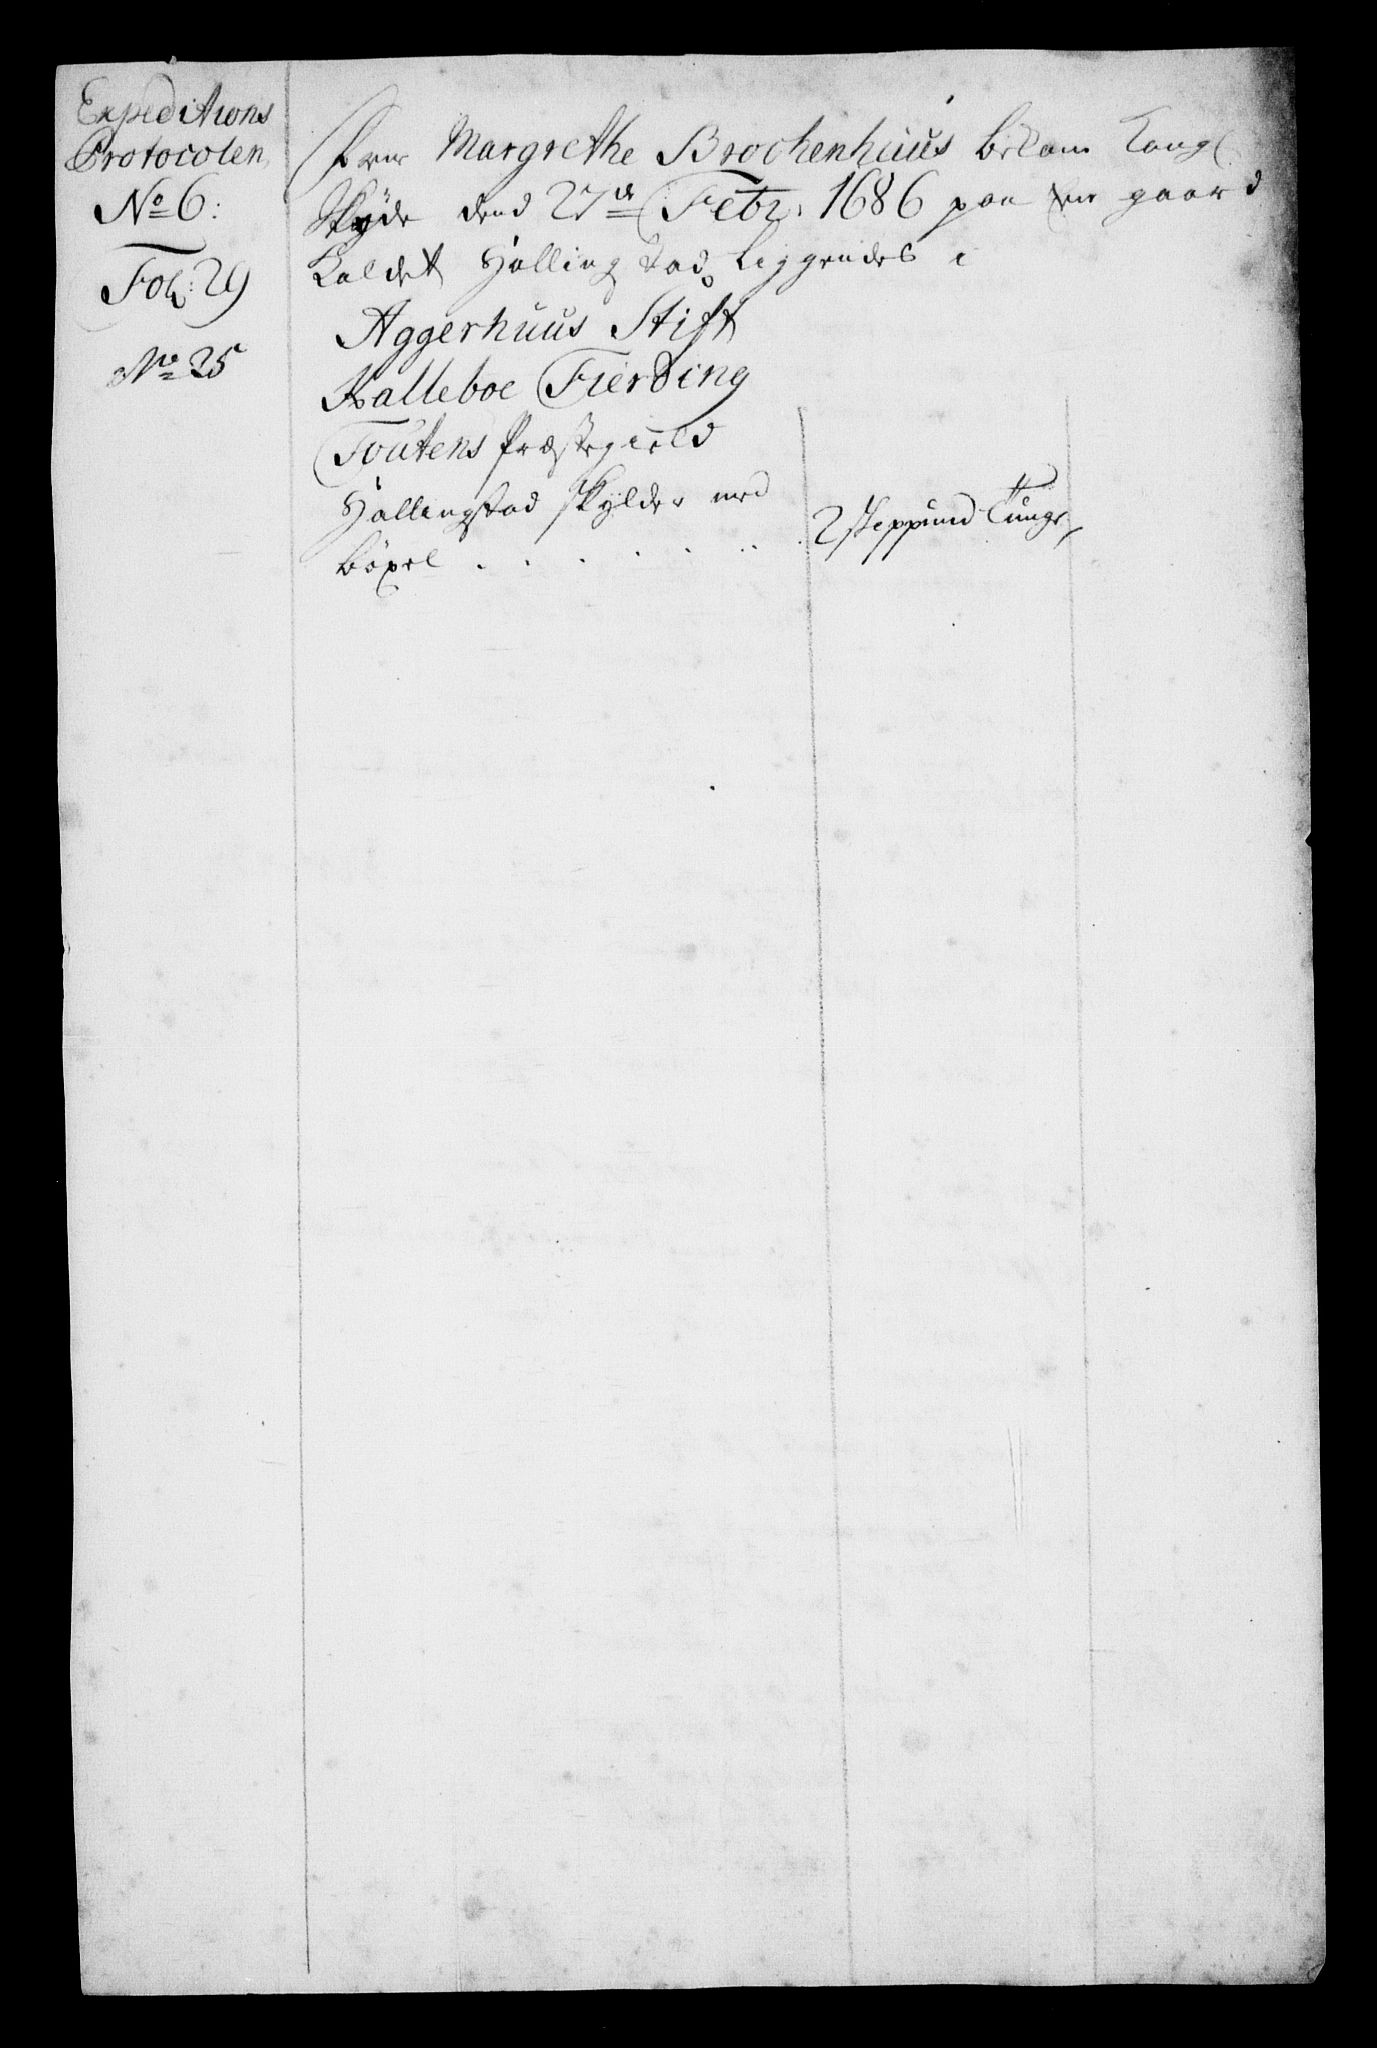 Expeditions
Protocolen
No 6:
Fol: 29
No 25
Frue Margrethe Brochenhuus bekom Kongl:
Skiøde dend 27de Febr: 1686 paa en gaard
kaldet Hallingstad liggendes i
Aggerhuus Stift
Walleboe Fierding
Toutens Præstegield
Hallingstad skylder med
böxel . . . . . . .
2 skeppund Tunge